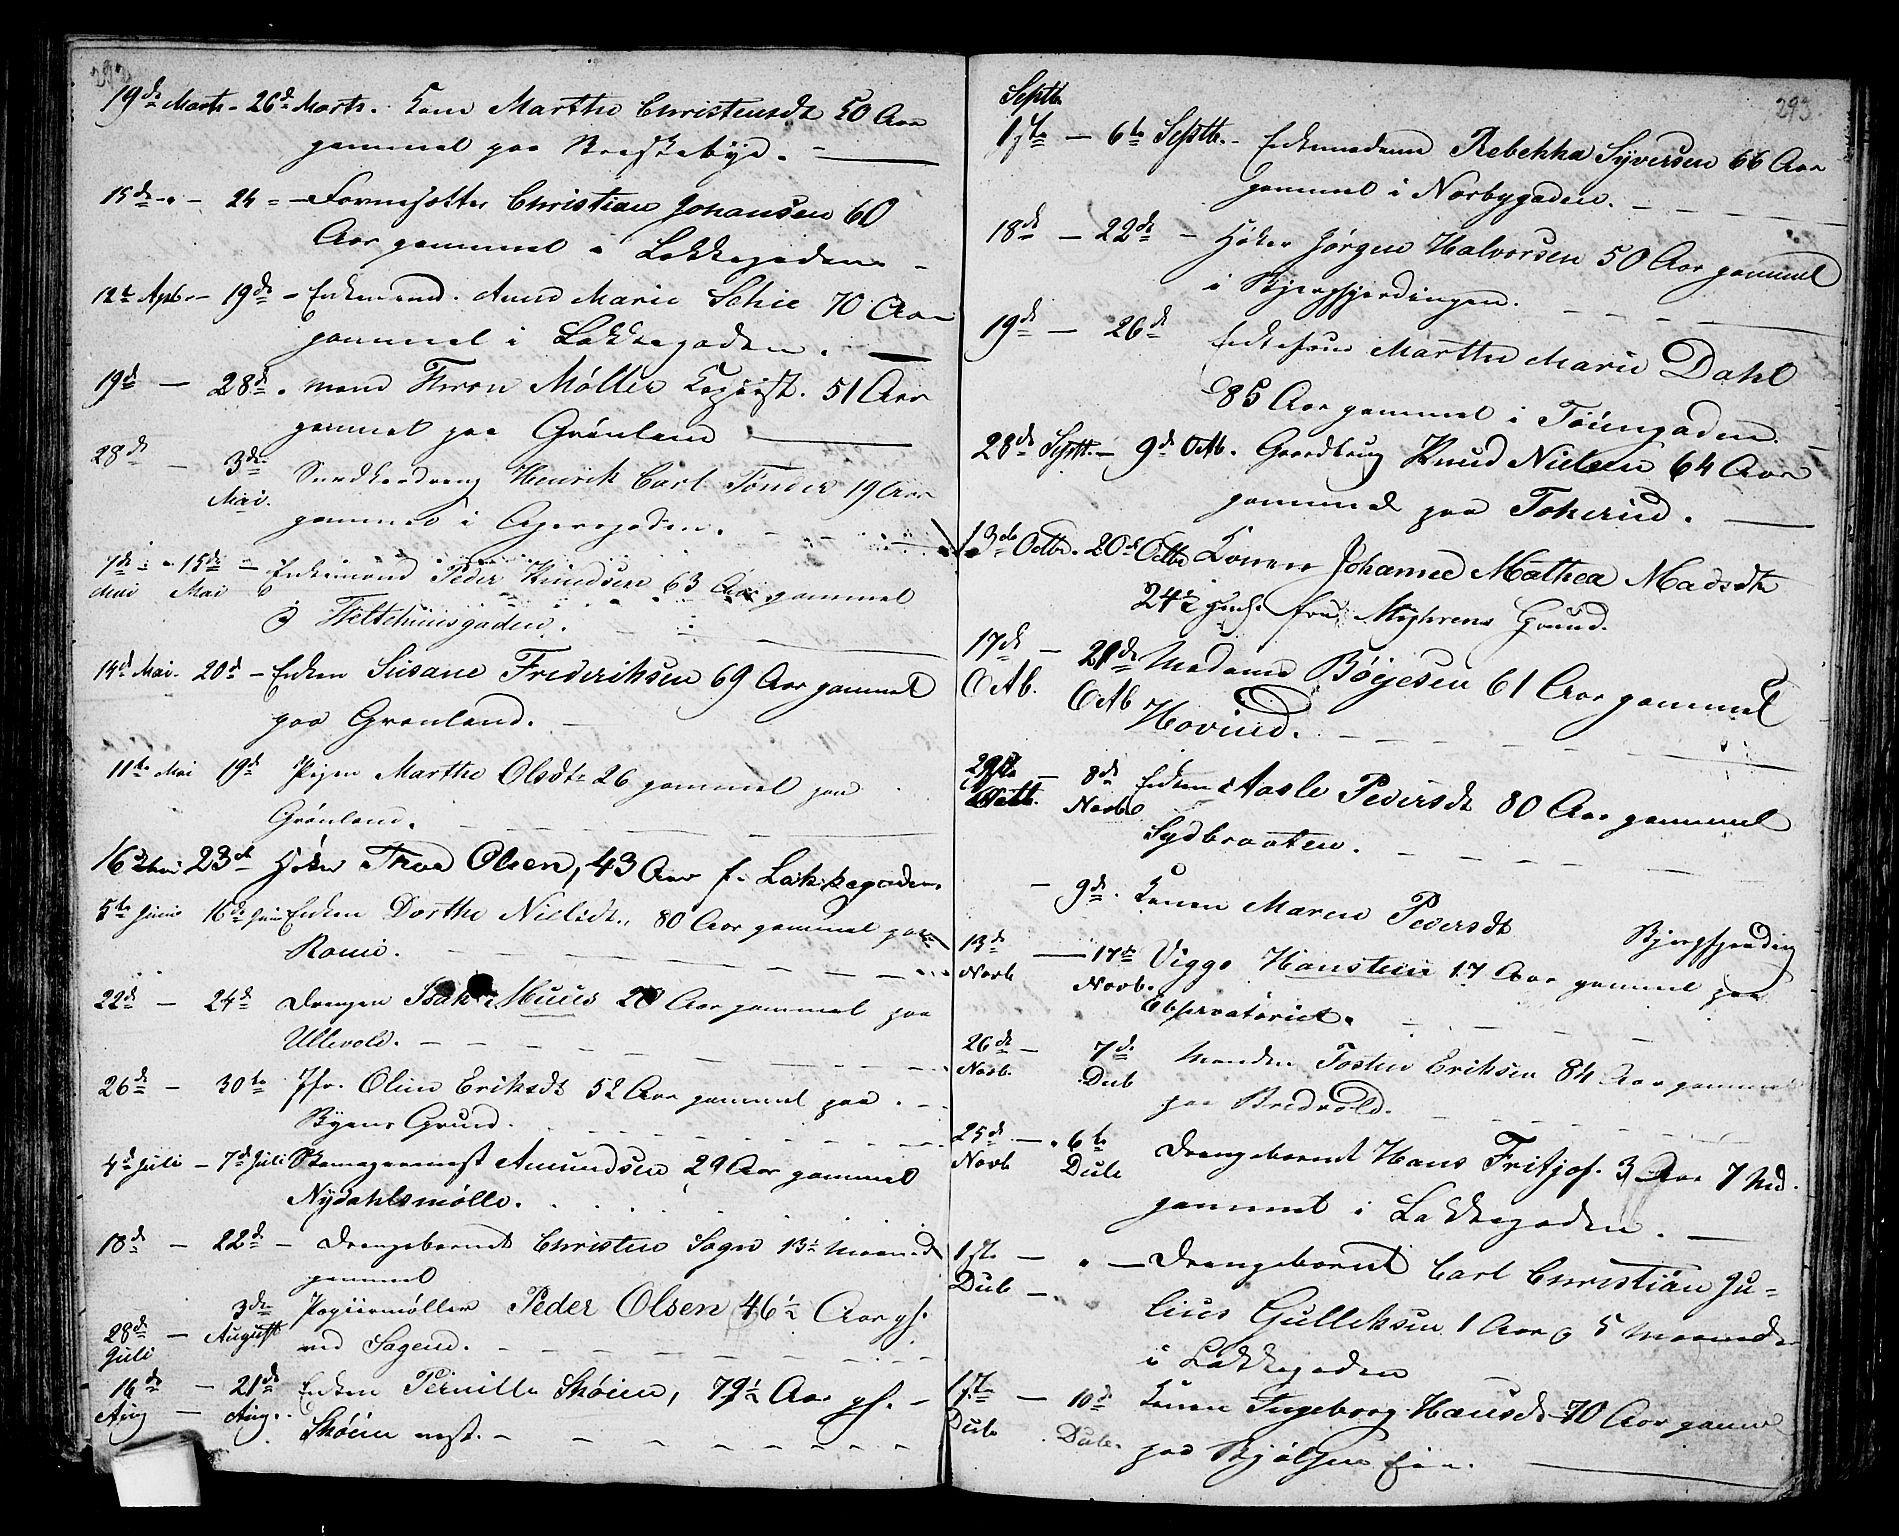 292
19de Marts - 26de Marts. Kone Marthe Christensdt 50 Aar
gammel paa Breskebye.
15de - 24 - Fornefatter Christian Johansen 60
Aar gammel i Lakkegaden
12te Apb. - 19de - Enkemad. Anne Marie Schie 70 Aar
gammel i Lakkegaden.
19de - 28de. mand Thron Møller Kopiist. 51 Aar
gammel paa Grønland
28de - 3de Mai. Snedkerdreng Henrik Carl Tønder 19 Aar
gammel i Agersgaden.
7de Mai - 15de Mai - Enkemand Peder Knudsen 63 Aar gammel
i Teltehuusgaden.
14de Mai. 20de - Enken Susane Frederiksen 69 Aar gammel
paa Grønland.
11te Mai 19de Pigen Marthe Olsdtr 26 gammel paa
Grønland.
16de Mai 23de Høker Thore Olsen, 43 Aar f. Lakkegaden.
5te Juni 16de Juni Enken Dorthe Nielsdt. 80 Aar gammel paa
Romi.
22de - 24de Drengen Isak Muus Aar gammel paa
Ullevold.
26de - 30te Jfr. Oline Eriksdt 52 Aar gammel paa
Byens Grund.
4de Juli - 7de Juli Skomagermest Amundsen 29 Aar gammel
Nydahlsmølle.
18de - 22de - Drengebarnet Christen Sagn 13½ Maaned
gammel
28de Juli - 3de August Papiirmøller Peder Olsen 46½ Aar gl.
ved Sagene.
16de Aug - 21de Aug. Enken Pernille Skøien, 79½ Aar gl. -
Skøien vest.
293.
Septb.
1ste - 6te Septb. - Enkemadame Rebekka Syversen 66 Aar
gammel i Norbygaden.
18de - 22de - Høker Jørgen Halvorsen 50 Aar gammel
i Bjergfjerdingen.
19de - 26de Enkefrue Marthe Marie Dahl
85 Aar gammel i Tøiengaden.
28de Septb. - 9de Octb. Gaardbrug Knud Nielsen 64 Aar
gammel paa Tokerud.
13de Octbr. 20de Octbr Konen Johanne Mathea Madsdtr
24½ fra Myhrens Grund.
17de Octb. - 21de Octb Madame Bøjesen 61 Aar gammel
Hovind.
29de Octb. - 8de Novb Enken Aasle Pedersdt 80 Aar gammel
Sydbraaten.
- 9de. Konen Maren Pedersdt Bjergfjerding
13de Novb - 17de Novb. Viggo Hansteen 17 Aar gammel paa
Observatoriet.
26de Novb. - 7de Decb Manden Tosten Eriksen 84 Aar gammel
paa Bredvold.
25de Novb - 6te Decb Drengebarnet Hans Fritjof. 3 Aar 7 Md.
gammel i Lakkegaden.
1ste Decb - Drengebarnet Carl Christian Ju-
lius Gulleksen 1 Aar og 5 Maaneder
i Lakkegaden
1ste Decb - 10de Decb. Konen Ingeborg Hansdt 70 Aar gammel
paa Bjølsen